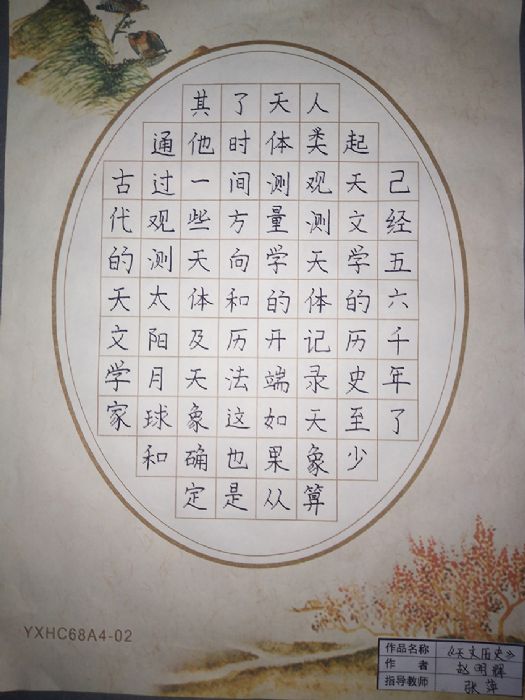 古代的天文学家
通过观测太阳月球和
其他一些天体及天象确定
了时间方向和历法这也是
天体测量学的开端如果从
人类观测天体记录天象算
起天文学的历史至少
己经五六千年了
YXHC68A4-02
作品名称 《天文历史》
作者 赵明辉
指导教师 张萍